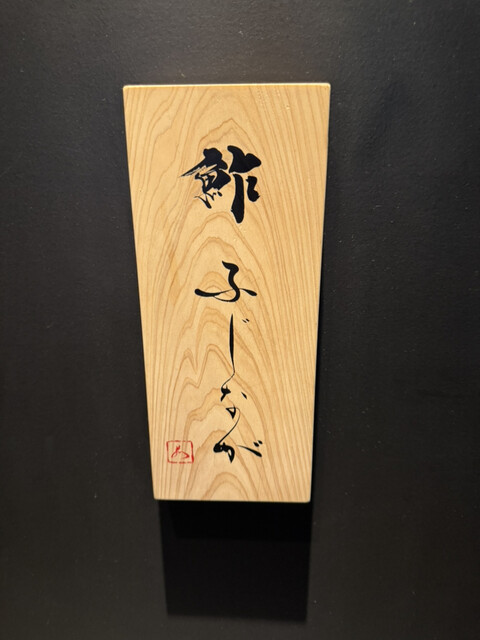 鮓
ふじなが